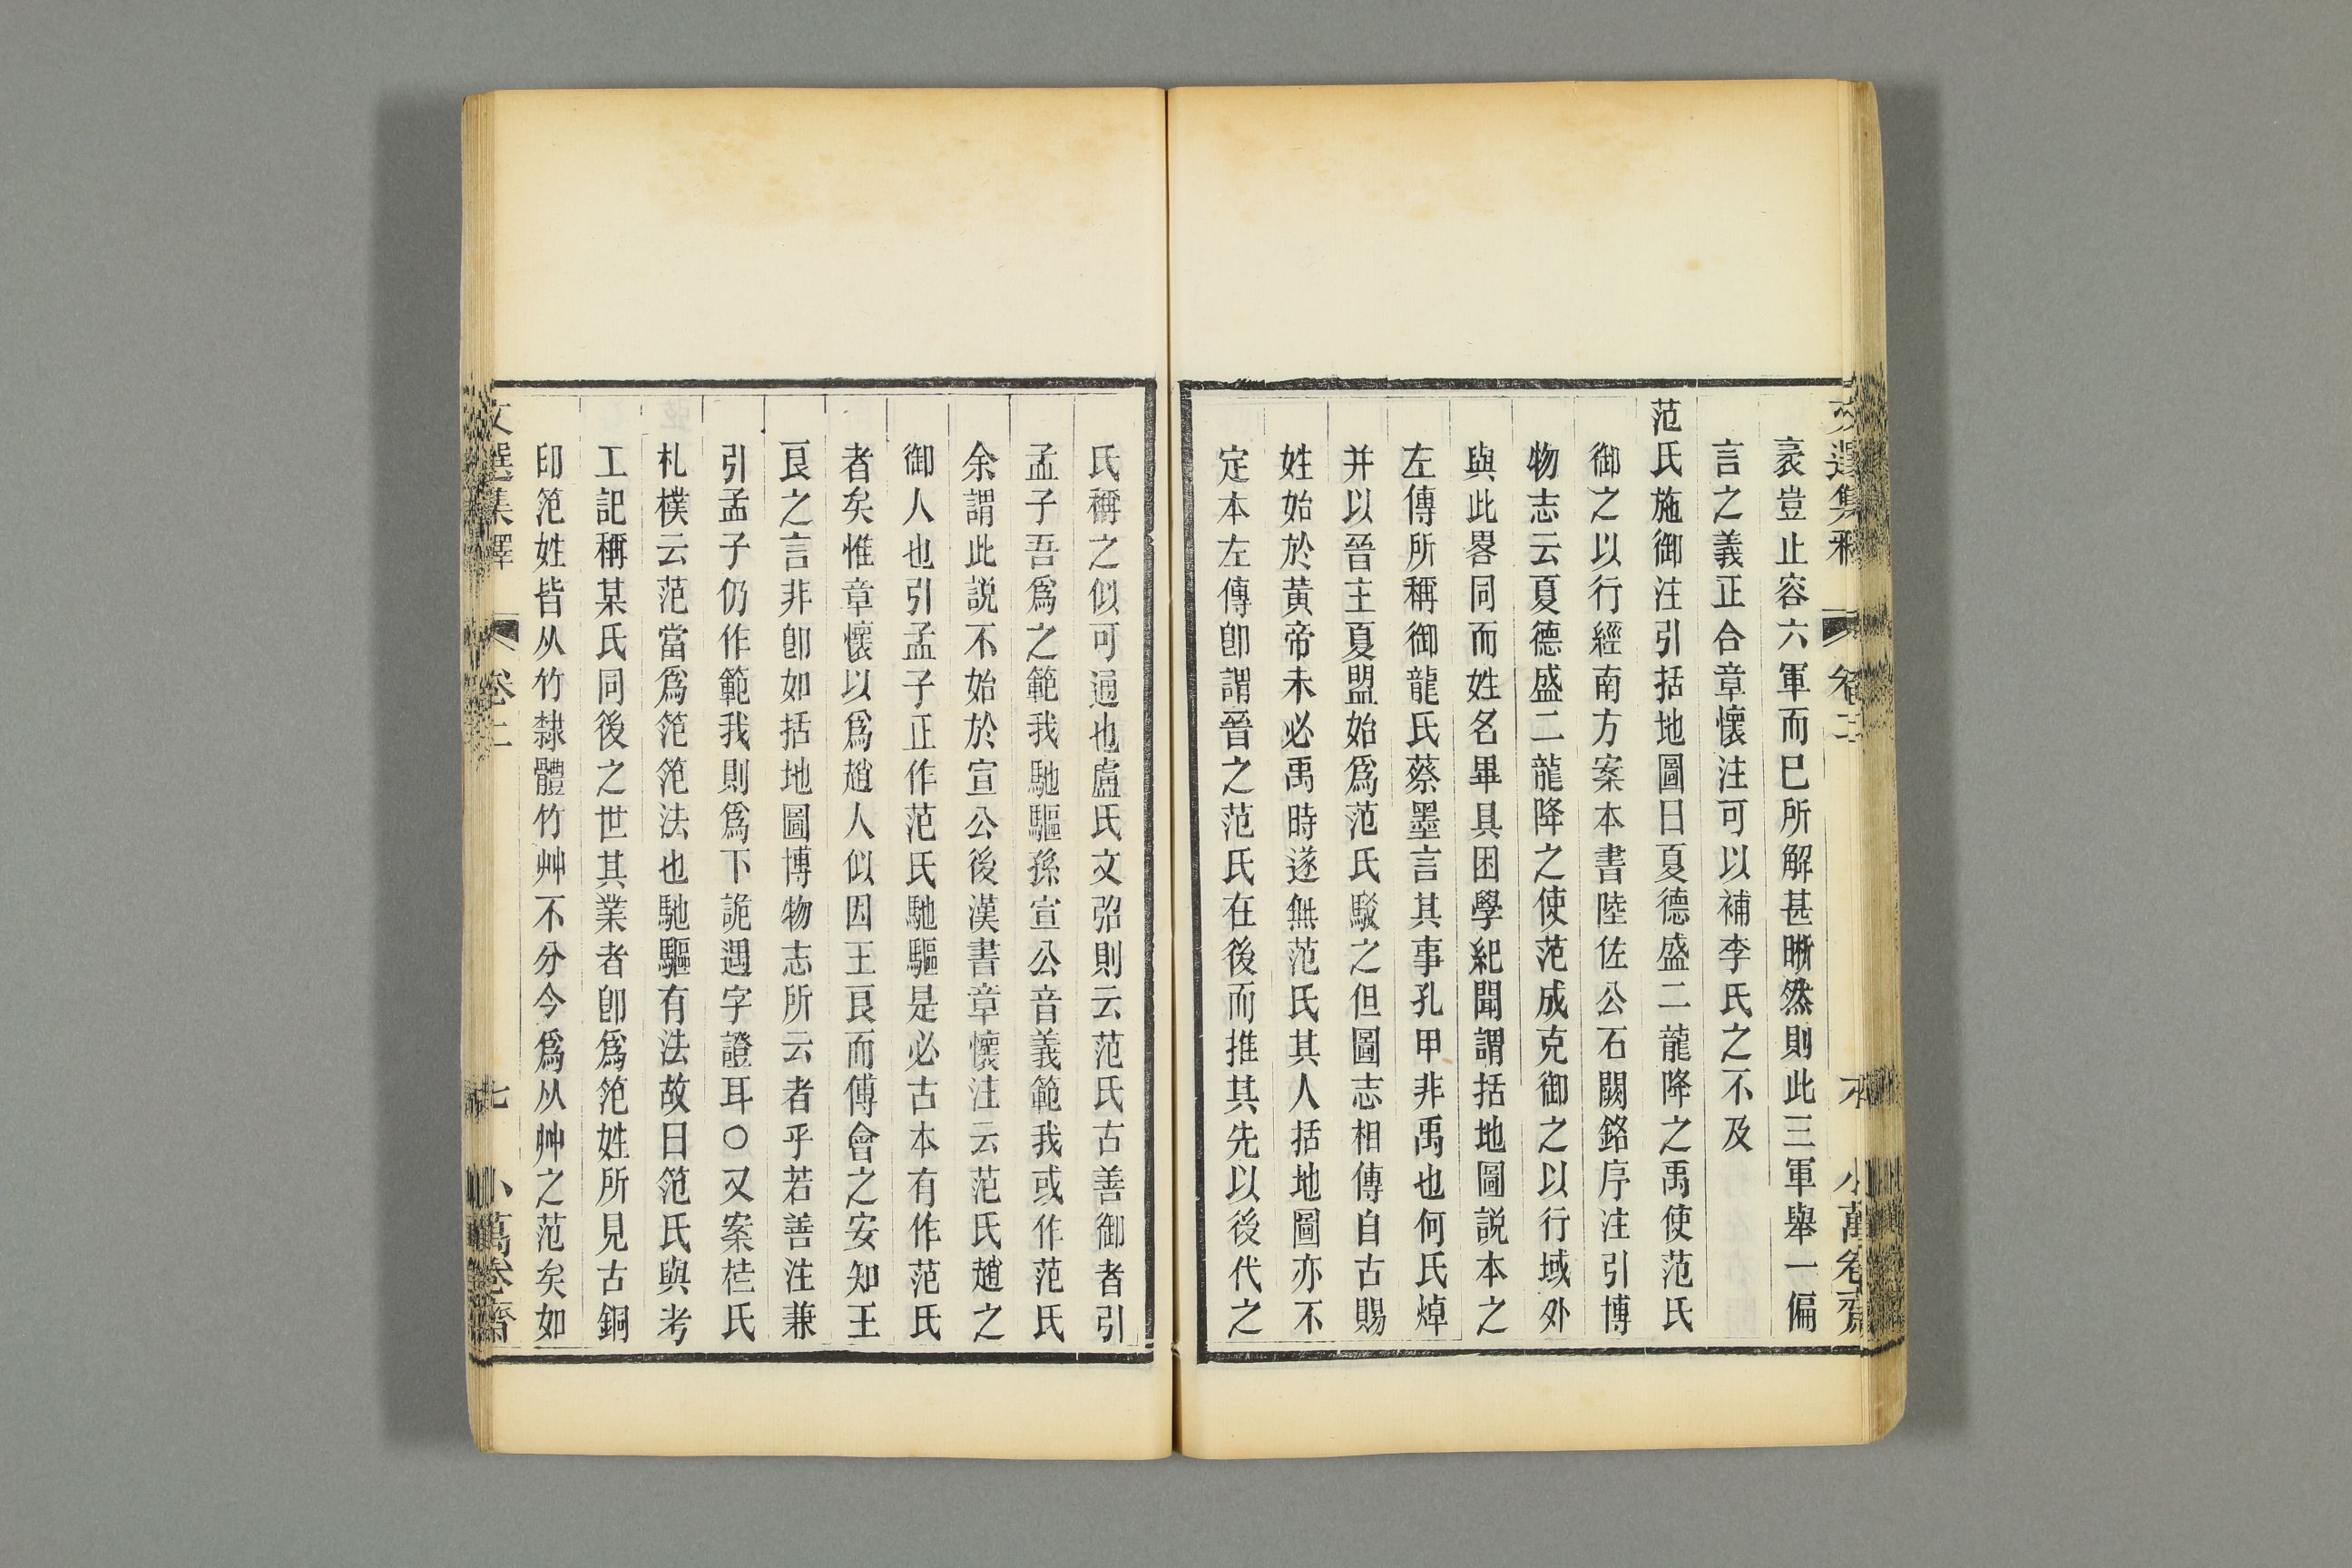 豪豈止容六軍而巳所解甚晰然則此三軍舉一偏
言之義正合章懷注可以補李氏之不及
范氏施御注引括地圖曰夏德盛二龍降之禹使范氏
御之以行經南方案本書陸佐公石闕銘序注引博
物志云夏德盛二龍降之使范成克御之以行域外
與此畧同而姓名畢具困學紀聞謂括地圖説本之
左傳所稱御龍氏蔡墨言其事孔甲非禹也何氏焯
并以晉主夏盟始爲范氏駁之但圖志相傳自古賜
姓始於黃帝未必禹時遂無范氏其人括地圖亦不
定本左傳卽謂晉之范氏在後而推其先以後代之
氏稱之似可通也盧氏文弨則云范氏古善御者引
孟子吾爲之範我馳驅孫宣公音義範我或作范氏
余謂此説不始於宣公後漢書章懷注云范氏趙之
御人也引孟子正作范氏馳驅是必古本有作范氏
者矣惟章懷以爲趙人似因王良而傅會之安知王
良之言非卽如括地圖博物志所云者乎若善注兼
引孟子仍作範我則爲下詭遇字證耳○又案桂氏
札樸云范當爲笵笵法也馳驅有法故曰笵氏與考
工記稱某氏同後之世其業者卽爲笵姓所見古銅
印笵姓皆从竹隸體竹艸不分今爲从艸之范矣如
文選集釋 卷二 七 小萬卷齋